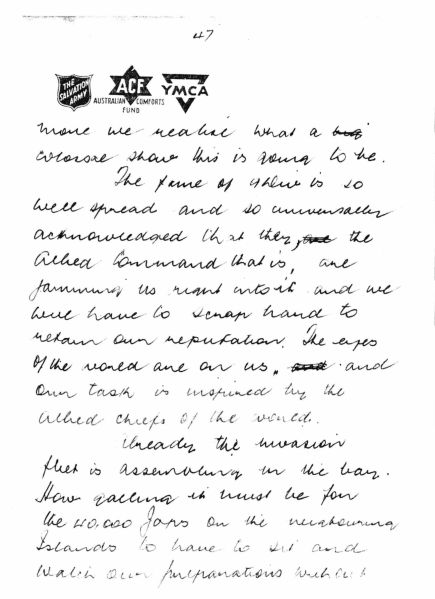 47
THE SALVATION ARMY
ACF
AUSTRALIAN COMFORTS FUND
YMCA
more we realise what a big
colosse show this is going to be.
The fame of is so
well spread and so universally
acknowledged that they, are the
Allied Command that is, are
jamming us right into it and we
will have to scrap hard to
retain our reputation. The eyes
of the world are on us, and and
our task is inspired by the
Allied chiefs of the world.
Already the invasion
fleet is assembling in the bay.
How galling it must be for
the 40,000 Japs on the neighbouring
Islands to have to sit and
watch our preparations without